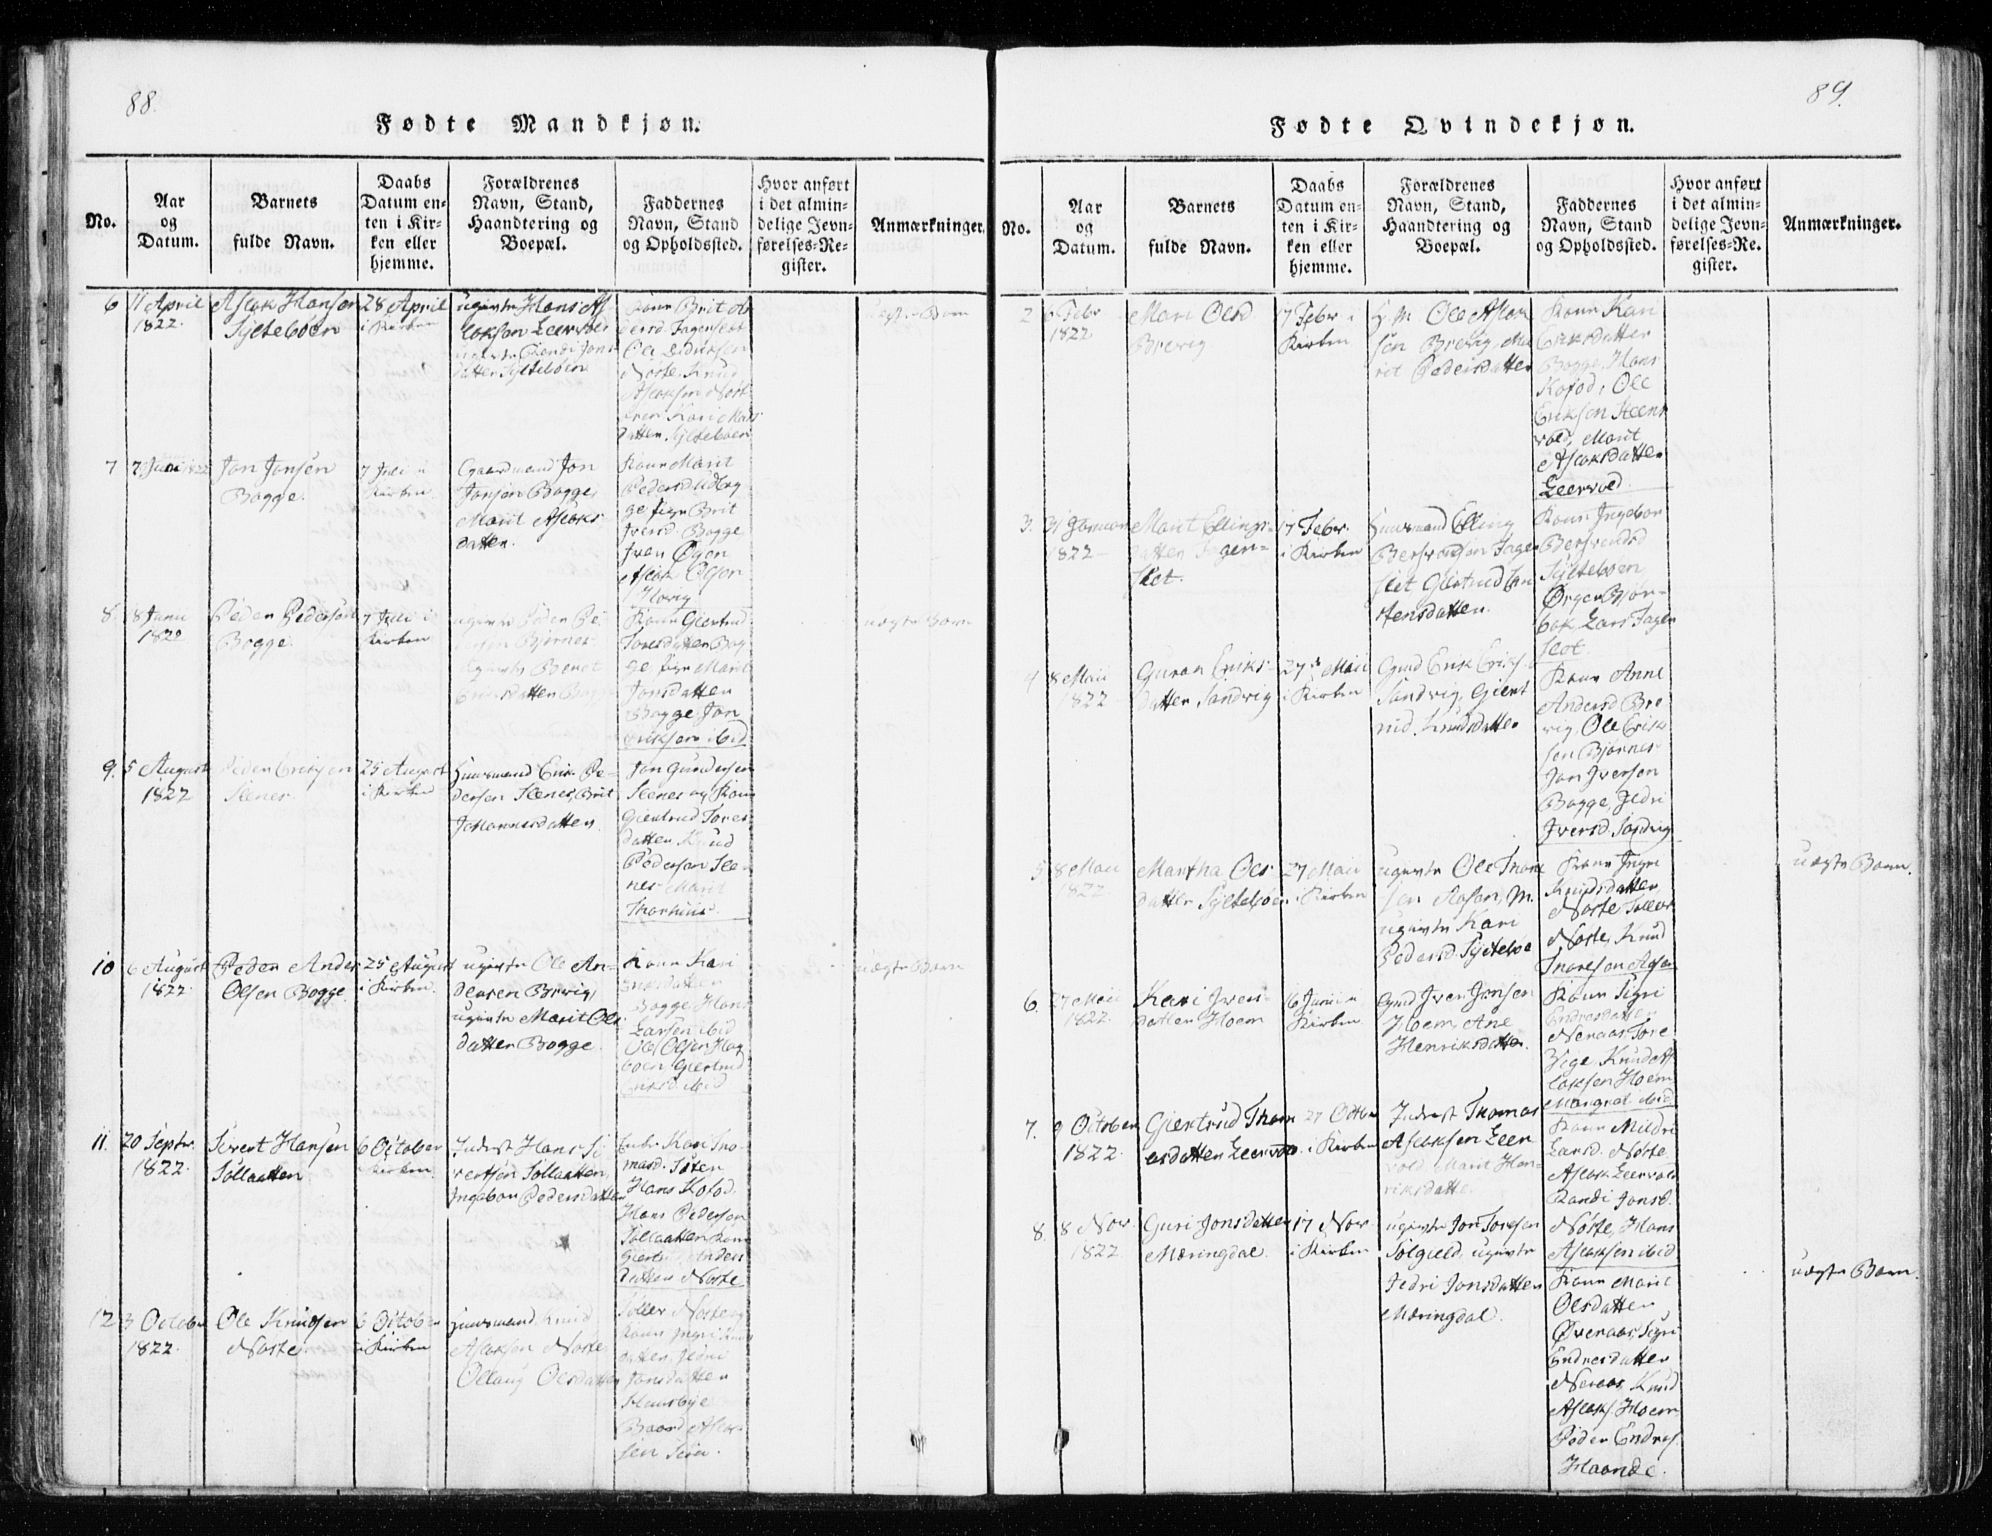 88.
Fødte Mandkjøn.
No.
Aar
og
Datum.
Barnets
fulde Navn.
Daabs
Datum en-
ten i Kir-
ken eller
hjemme.
Forældrenes
Navn, Stand,
Haandtering og
Boepæl.
Faddernes
Navn, Stand
og Opholdssted.
Hvor anført
i det almin-
delige Jevn-
førelses-Re-
gister.
Anmærkninger.
6
11 April
1822.
Aslak Hansen
Sylteböen
28 April
i Kirken
ugivte Hans As
laksen Leervold
ugivte Randi Jons
datter Sylteböen
Kone Brit
Ole Didriksen
Nöste, Knud
Aslaksen Nöst
Kari Mads
datter Sylteböen
7
7 Juni 1822
Jon Jonsen
Bogge.
7 Juli i
Kirken
Gaardmand Jon
Jonsen Bogge,
Marit Aslaks
datter.
Kone Marit
Pedersd Bog
ge pige Brit
Iversd. Bogge
Iver
Aslak Olsen
8.
8 Juni
1822
Peder Pedersen
Bogge.
7 Juli i
Kirken
ugivte Peder Pe
Björnes
ugivte Beret
Eriksdatter Bogge
Kone Giertrud
Toresdatter Bog
ge pige Marit
Jonsdatter
Bogge, Jon
Eriksen ibid
uægte Barn
9.
5 August
1822
Peder Eriksen
Stenes.
25 August
i Kirken
Huusmand Erik Pe-
dersen Stenes, Brit
Johannesdatter
Jon Gundersen
Stenes og Kone
Giertrud Tores
datter Knud
Pedersen Ste
nes Marit
10
6 August
1822.
Peder Anders
Olsen Bogge
25 August
i Kirken.
ugivte Ole An-
dersen Brevig,
ugivte Marit Ols
datter Bogge.
Kone Kari
Eriksdatter
Bogge, Hans
Larsen ibid
Ole Olsen
Giertrud
Eriksd. ibid
uægte Barn
11.
20 Septr.
1822.
Sivert Hansen
Söllaatten
6 October
i Kirken.
Inderst Hans Si
vertsen Söllaatten,
Ingebor Pedersdatter
Enke Kari Tho
masd.
Hans Kofod.
Hans Pedersen
Söllaatten Kone
Anders
datter Nöste
12
3 October
1822.
Ole Knudsen
Nöste
6 October
i Kirken
Huusmand Knud
Aslaksen Nöste
Ollaug Olsdatter
Töller Nöste og
Kone Ingri Knuds
datter
Jonsdatter
Baard Aslak
sen
89.
Fødte Qvindekjøn.
No.
Aar
og
Datum.
Barnets
fulde Navn.
Daabs
Datum en-
ten i Kir-
ken eller
hjemme.
Forældrenes
Navn, Stand,
Haandtering og
Boepæl.
Faddernes
Navn, Stand
og Opholdssted.
Hvor anført
i det almin-
delige Jevn-
førelses-Re-
gister.
Anmærkninger.
2
Febr
1822
Mari Olsd
Brevig
17 Febr i
Kirken
H. M. Ole Aslak
sen Brevig, Ma
rit Pedersdatter
Kone Kari
Eriksdatter
Bogge, Hans
Kofod, Ole
Eriksen Steens
vold, Marit
Aslaksdatter
Leervold.
3.
31 Januar
1822
Marit Ellings-
datter Fagen-
slet.
17 Febr.
i Kirken
Huusmand Elling
Bersvendsen Fagen
slet Giertrud Chri
stensdatter.
Kone Ingebor
Bersvendsd
Sylteböen
Örgen Björ-
bak Lars Fagen
slet
4
8 Maii
1822
Guron Eriks
datter Sandvig
27 Maii
i Kirken
Gmd Erik Eriks
Sandvig, Giert
rud Knudsdatter
Kone Anne
Andersd Bre
vig, Ole Erik
sen Björnes
Jon Iversen
Bogge, Sidri
Iversd. Sandvig
5
8 Maii
1822
Martha Ols
datter Sylteböen
27 Maii
i Kirken
ugivte Ole Thore
sen
ugivte Kari
Pedersd. Sylteböe
Kone Ingri
Knudsdatter
Nöste, Töller
Nöste, Knud
Thoresen
uægte Barn.
6.
27 Maii
1822.
Kari Ivers-
datter Hoem
16 Junii i
Kirken
Gmd Iver Jonsen
Hoem, Ane
Henriksdatter.
Kone Sigri
Endresdatter
Neraas Tore
Vige, Knud As
laksen Hoem
Margret ibid
7.
9 October
1822.
Giertrud Thom
asdatter Leervold
27 Octbr
i Kirken
Inderst Thomas
Aslaksen Leer
vold, Marit Hen-
riksdatter.
Kone Mildri
Larsd. Nöste
Aslak Leervold
Randi Jonsd.
Nöste, Hans
Aslaksen ibid
8.
8 Nov
1822
Guri Jonsdatter
Meringdal.
17 Nov
i Kirken
ugivte Jon Toresen
Sölgield, ugivte
Sidri Jonsdatter
Meringdal.
Kone Marit
Olsdatter
Överaas, Sigri
Endresdatter
Neraas, Knud
Aslaks. Hoem,
Peder Endres.
Haande.
uægte Barn.